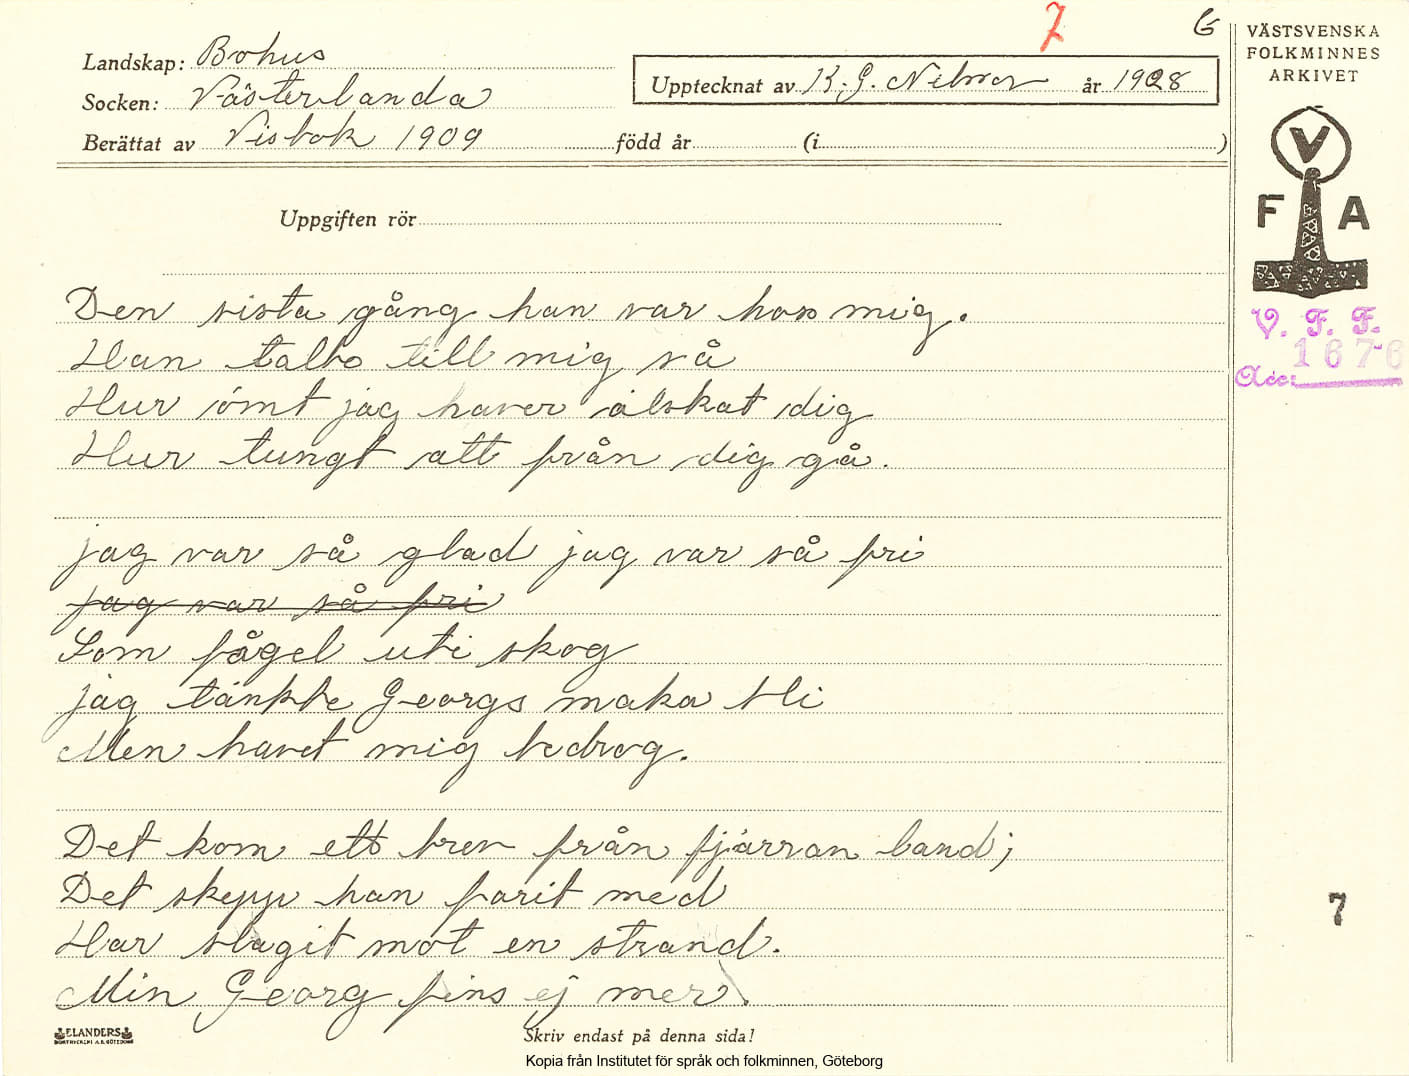 7
G
Landskap: Bohus
Socken: Västerlanda
Berättat av Visbok 1909 född år (i )
Upptecknat av K. G. Nilson år 1928
VÄSTSVENSKA
FOLKMINNES
ARKIVET
V
F A
V. F. F.
Acc: 1676
Uppgiften rör
Den sista gång han var hos mig.
Han talte till mig så
Hur ömt jag haver älskat dig
Hur tungt att från dig gå.
jag var så glad jag var så fri
jag var så fri
Som fågel uti skog
jag tänkte Georgs maka bli
Men havet mig bedrog.
Det kom ett brev från fjärran land;
Det skepp han farit med
Har slagit mot en strand.
Min Georg fins ej mer.
7
ELANDERS
BOKTRYCKERI A.B. GÖTEBORG
Skriv endast på denna sida!
Kopia från Institutet för språk och folkminnen, Göteborg